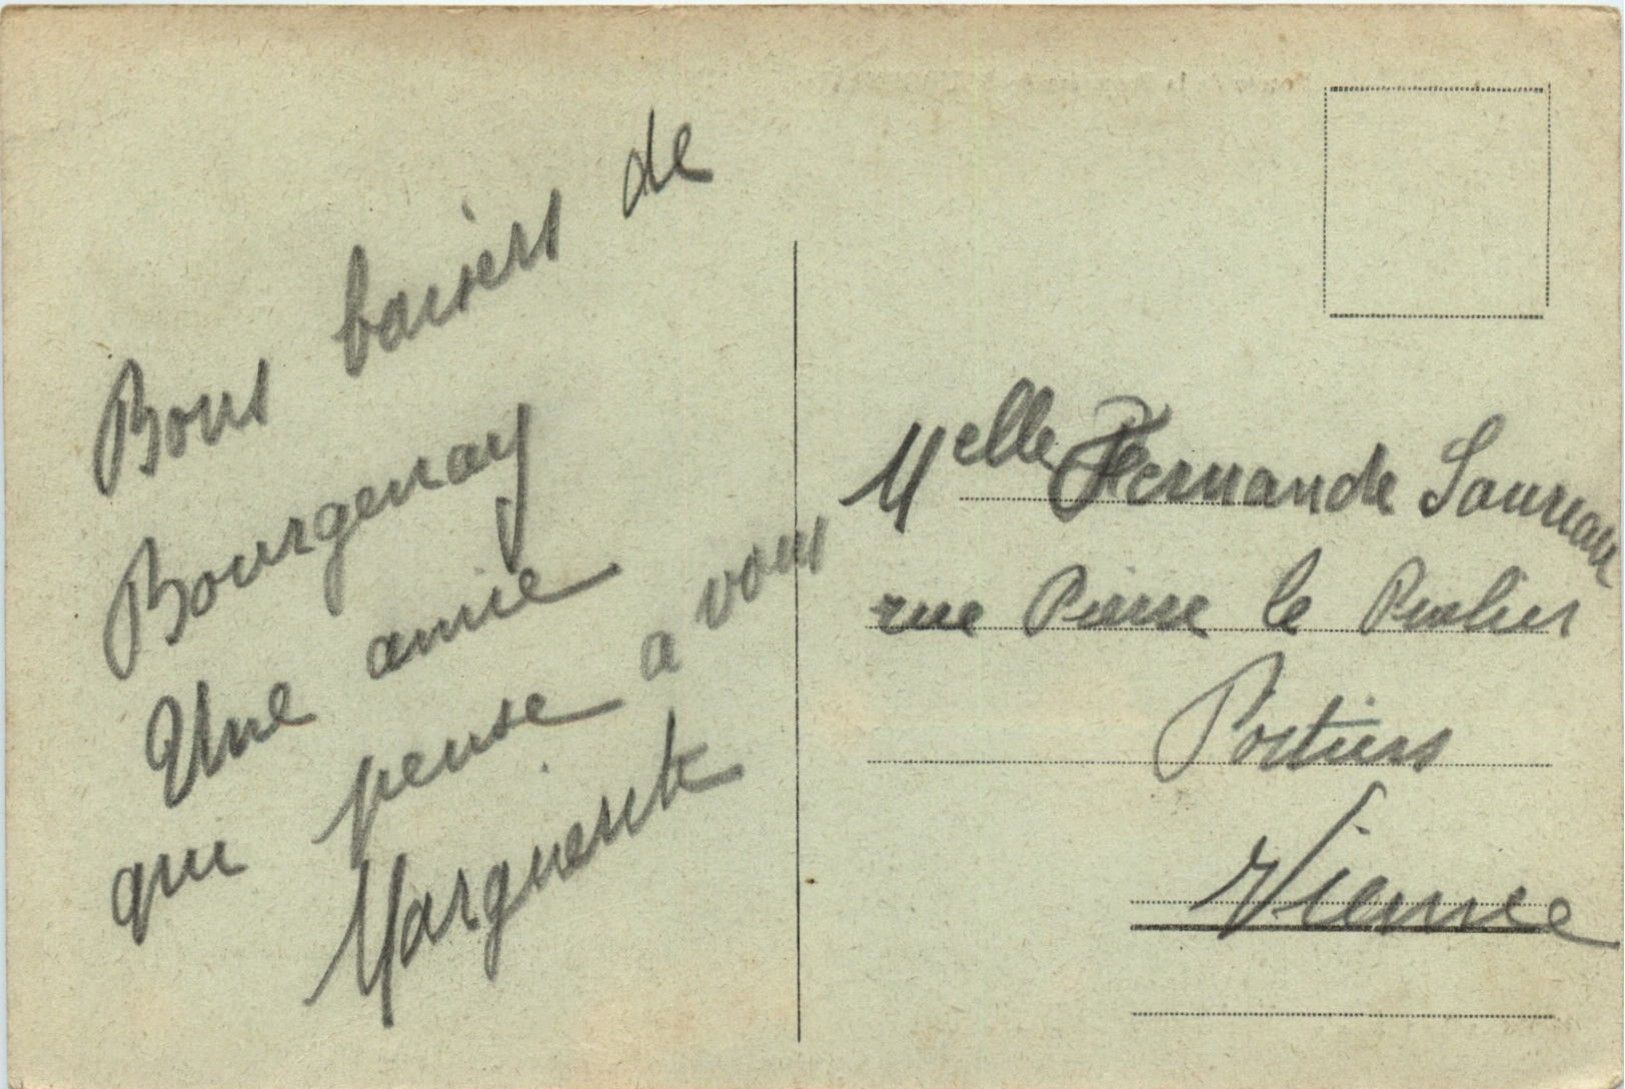 Bons baisers de
Bourgenay
Une amie
qui pense a vous
Marguerite
Melle Fernande Saureau
rue Pierre le
Poitiers
Vienne